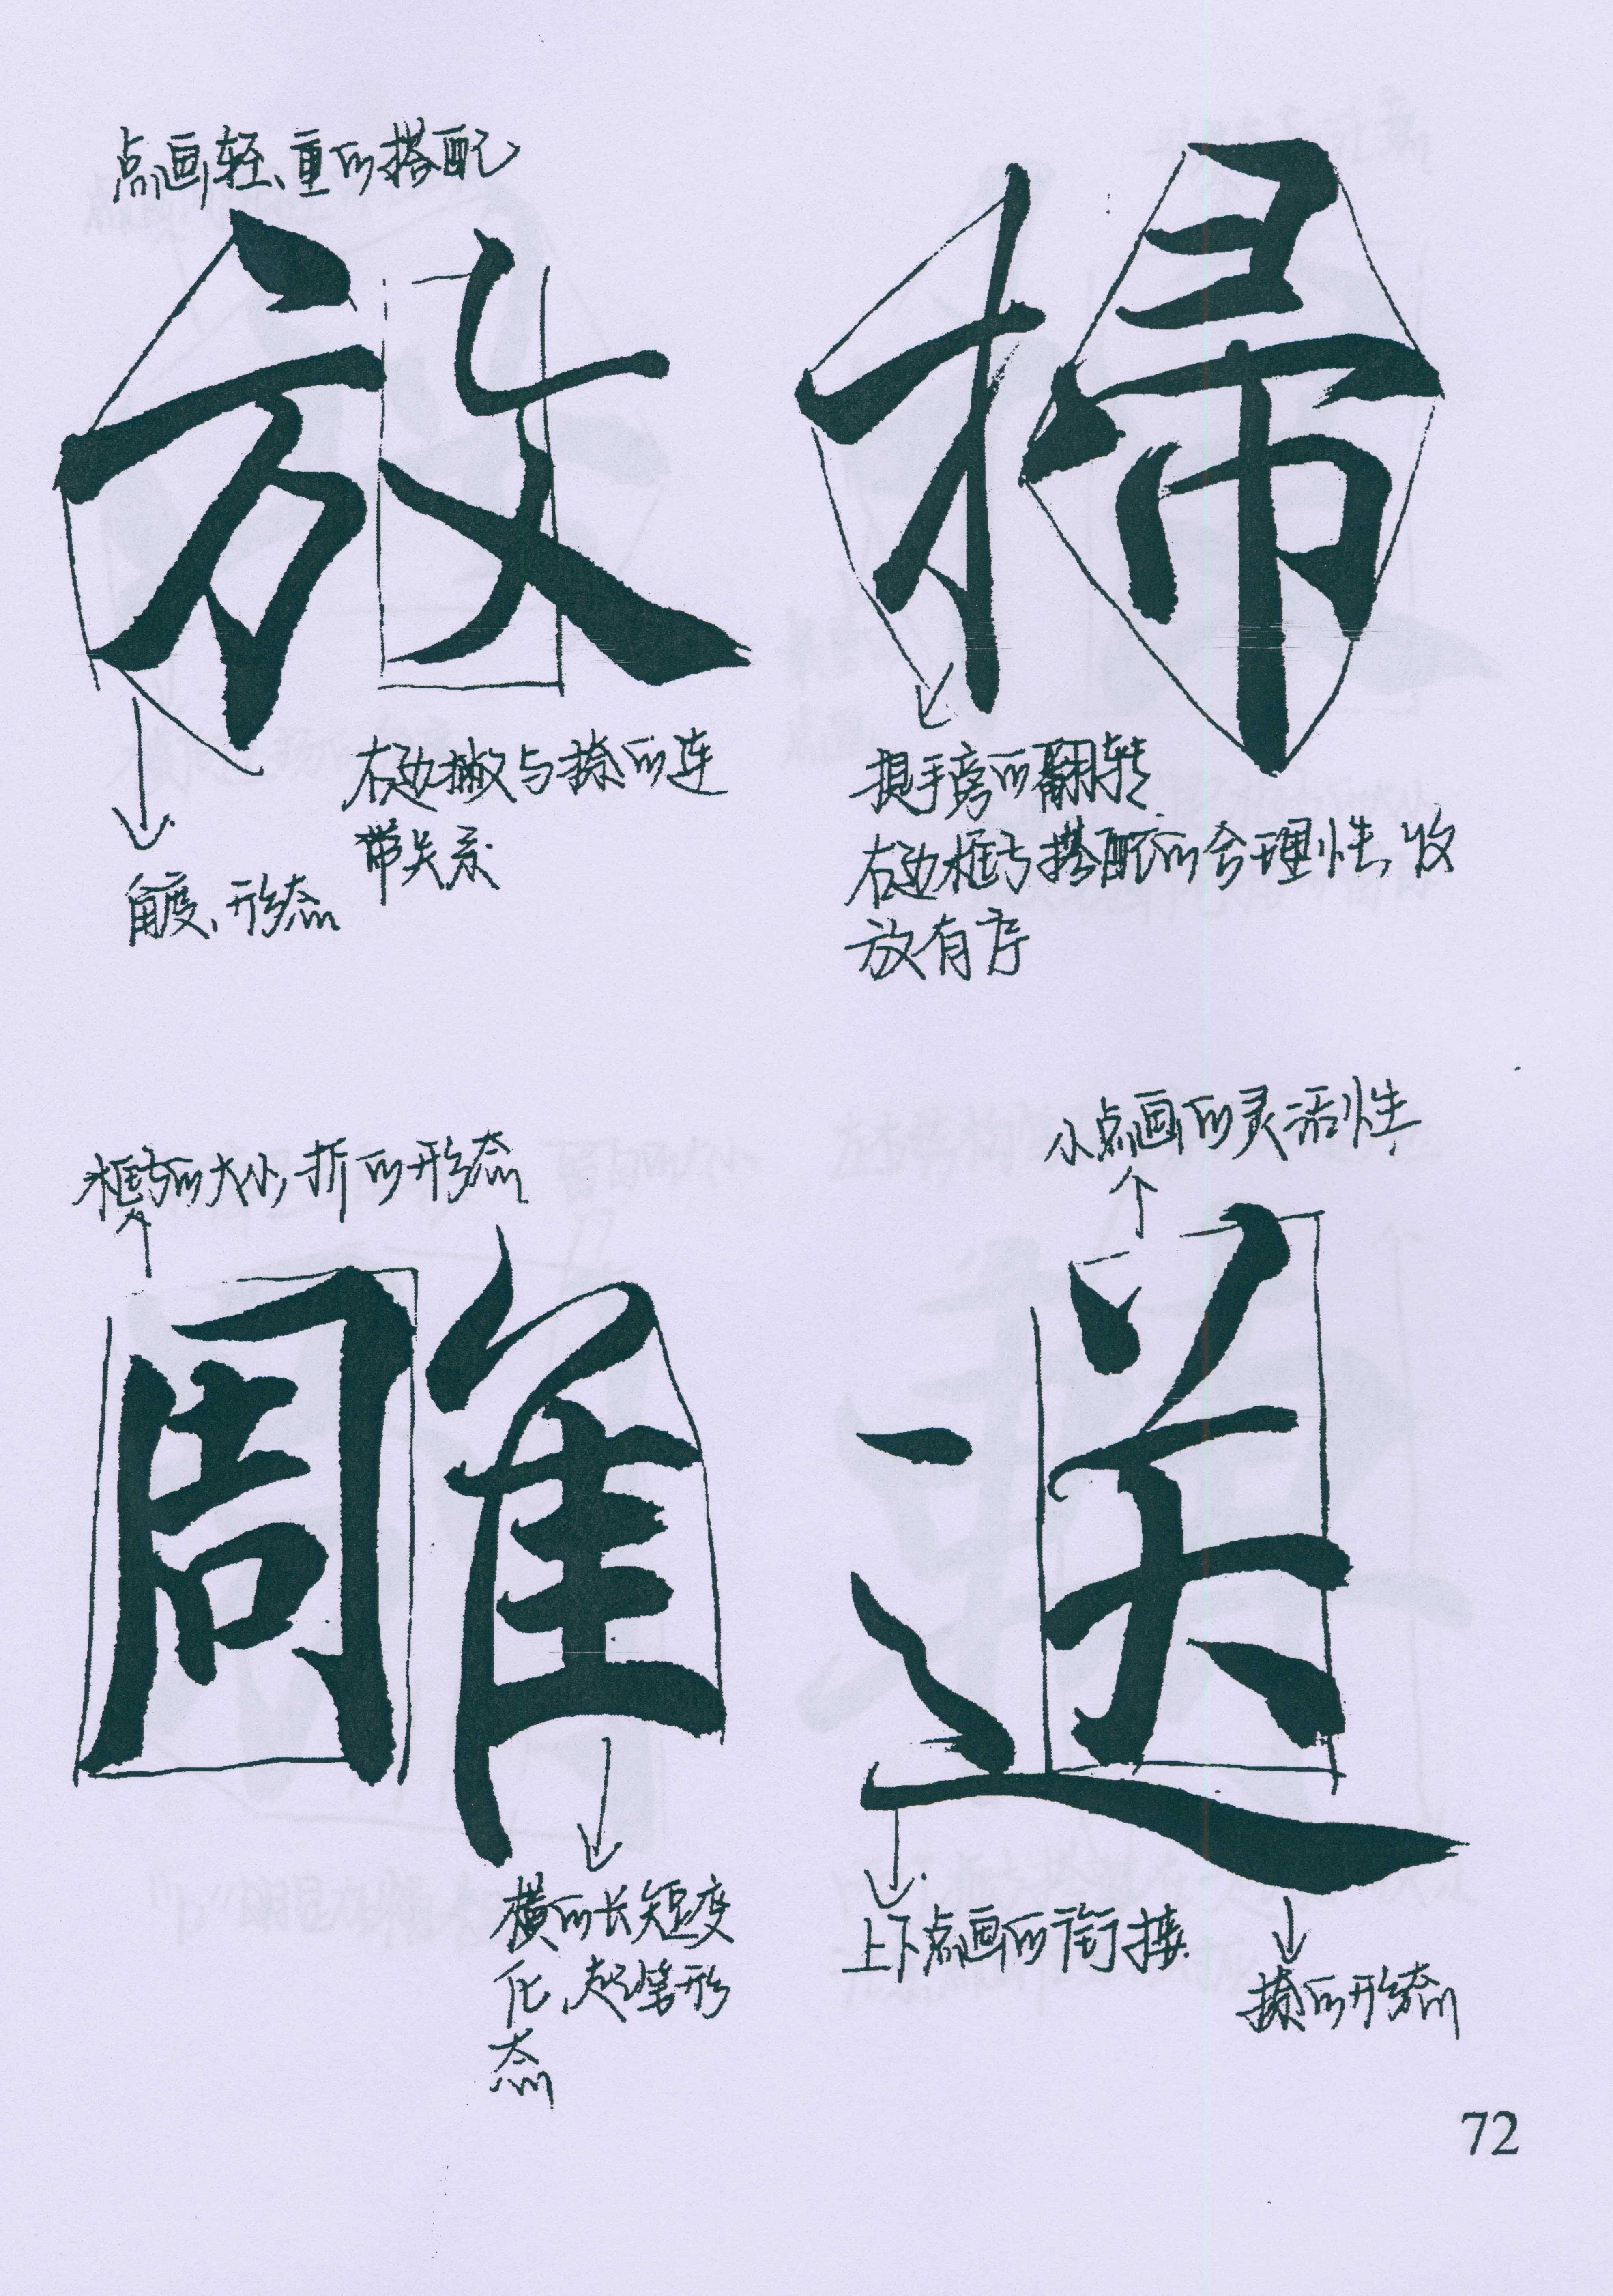 点画轻、重的搭配
放
角度、形态
右边撇与捺的连
带关系
掃
提手旁的翻转
右边框与搭配的合理性,收
放有序
框与的大小,折的形态
雕
横的长短变
化,起笔形
态
小点画的灵活性
送
上下点画的衔接
捺的形态
72